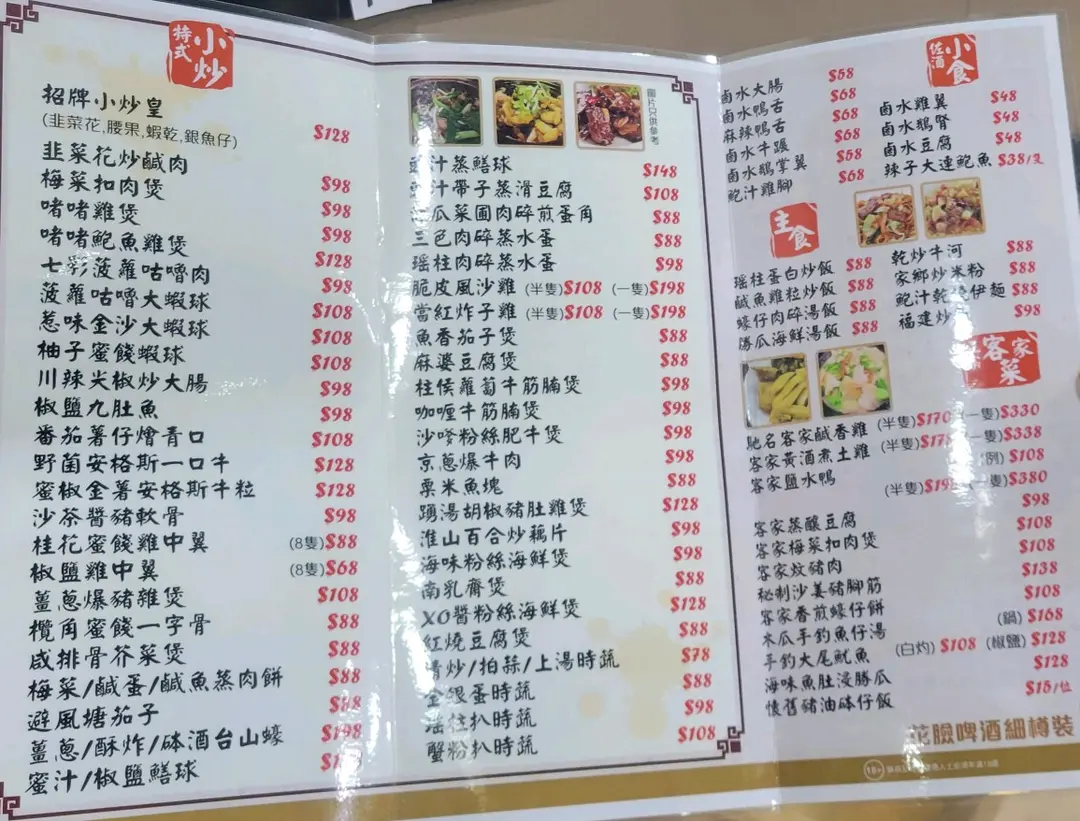 特式小炒
招牌小炒皇
(韭菜花,腰果,蝦乾,銀魚仔) $128
韭菜花炒鹹肉 $98
梅菜扣肉煲 $98
啫啫雞煲 $98
啫啫鮑魚雞煲 $128
七彩菠蘿咕嚕肉 $98
菠蘿咕嚕大蝦球 $108
惹味金沙大蝦球 $108
柚子蜜餞蝦球 $108
川辣尖椒炒大腸 $98
椒鹽九肚魚 $98
番茄薯仔燴青口 $108
野菌安格斯一口牛 $128
蜜椒金薯安格斯牛粒 $128
沙茶醬豬軟骨 $98
桂花蜜餞雞中翼 (8隻)$88
椒鹽雞中翼 (8隻)$68
薑蔥爆豬雜煲 $108
欖角蜜餞一字骨 $88
咸排骨芥菜煲 $88
梅菜/鹹蛋/鹹魚蒸肉餅 $88
避風塘茄子 $88
薑蔥/酥炸/砵酒台山蠔
蜜汁/椒鹽鱔球
圖片只供參考
汁蒸鱔球 $148
汁帶子蒸滑豆腐 $108
瓜菜圃肉碎煎蛋角 $88
三色肉碎蒸水蛋 $88
瑤柱肉碎蒸水蛋 $98
脆皮風沙雞 (半隻)$108 (一隻)$198
當紅炸子雞 (半隻)$108 (一隻)$198
魚香茄子煲 $88
麻婆豆腐煲 $88
柱侯蘿蔔牛筋腩煲 $98
咖喱牛筋腩煲 $98
沙嗲粉絲肥牛煲 $98
京蔥爆牛肉 $98
粟米魚塊 $88
踴湯胡椒豬肚雞煲 $128
淮山百合炒藕片 $98
海味粉絲海鮮煲 $98
南乳齋煲 $88
XO醬粉絲海鮮煲 $128
紅燒豆腐煲 $88
清炒/拍蒜/上湯時蔬 $78
金銀蛋時蔬 $88
瑤柱扒時蔬 $98
蟹粉扒時蔬 $108
佐酒小食
鹵水大腸 $58
鹵水鴨舌 $68
麻辣鴨舌 $68
鹵水牛𦟌 $68
鹵水鵝掌翼 $58
鮑汁雞腳 $68
鹵水雞翼 $48
鹵水鵝腎 $48
鹵水豆腐 $48
辣子大連鮑魚 $38/隻
主食
瑤柱蛋白炒飯 $88
鹹魚雞粒炒飯 $88
蠔仔肉碎湯飯 $88
勝瓜海鮮湯飯 $88
乾炒牛河 $88
家鄉炒米粉 $88
鮑汁乾燒伊麵 $88
福建炒 $98
客家菜
馳名客家鹹香雞 (半隻)$170 (一隻)$330
客家黃酒煮土雞 (半隻)$178 (一隻)$338
客家鹽水鴨 (例) $108
(半隻)$198 (一隻)$380
客家蒸釀豆腐 $98
客家梅菜扣肉煲 $108
客家炆豬肉 $108
秘制沙姜豬腳筋 $138
客家香煎蠔仔餅 $108
木瓜手釣魚仔湯 (鍋) $168
手釣大尾魷魚 (白灼) $108 (椒鹽) $128
海味魚肚浸勝瓜 $128
懷舊豬油砵仔飯 $15/位
花臉啤酒細樽裝
18+